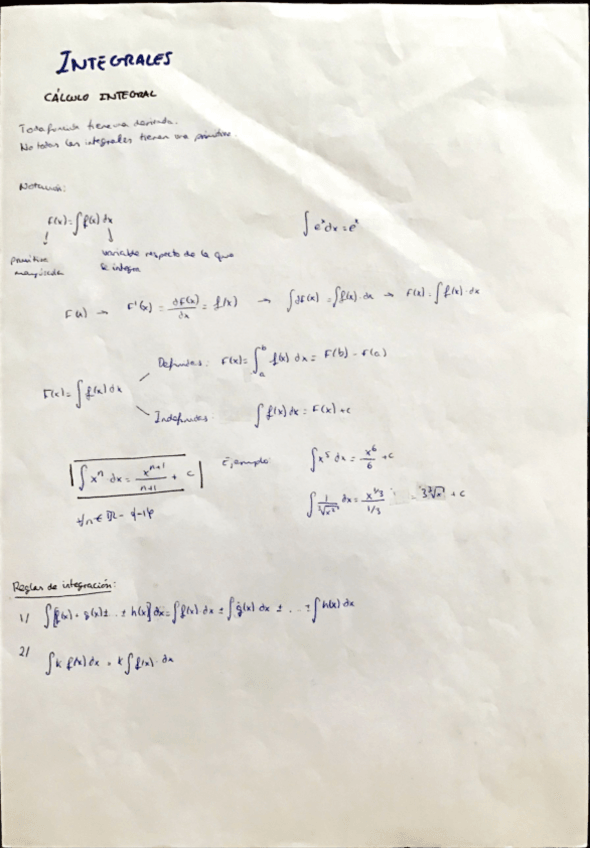 INTEGRALES
CÁLCULO INTEGRAL
Toda función tiene una derivada.
No todas las integrales tienen una primitiva.
Notación:
F(x) = ∫ f(x) dx
∫ e^x dx = e^x
↓ ↓
primitiva mayúscula
variable respecto de la que se integra
F(x) → F'(x) = dF(x)/dx = f(x) → ∫ dF(x) = ∫ f(x) · dx → F(x) = ∫ f(x) · dx
F(x) = ∫ f(x) dx
Definidas: F(x) = ∫_a^b f(x) dx = F(b) - F(a)
Indefinidas: ∫ f(x) dx = F(x) + C
∫ x^n dx = x^(n+1)/(n+1) + C
Ejemplo ∫ x^5 dx = x^6/6 + C
∫ 1/∛x² dx = x^(1/3)/(1/3) = 3∛x + C
∀n ∈ ℝ - {-1}
Reglas de integración:
1/ ∫ [f(x) ± g(x) ± .. ± h(x)] dx = ∫ f(x) · dx ± ∫ g(x) dx ± .. ± ∫ h(x) dx
2/ ∫ k f(x) dx = k ∫ f(x) · dx